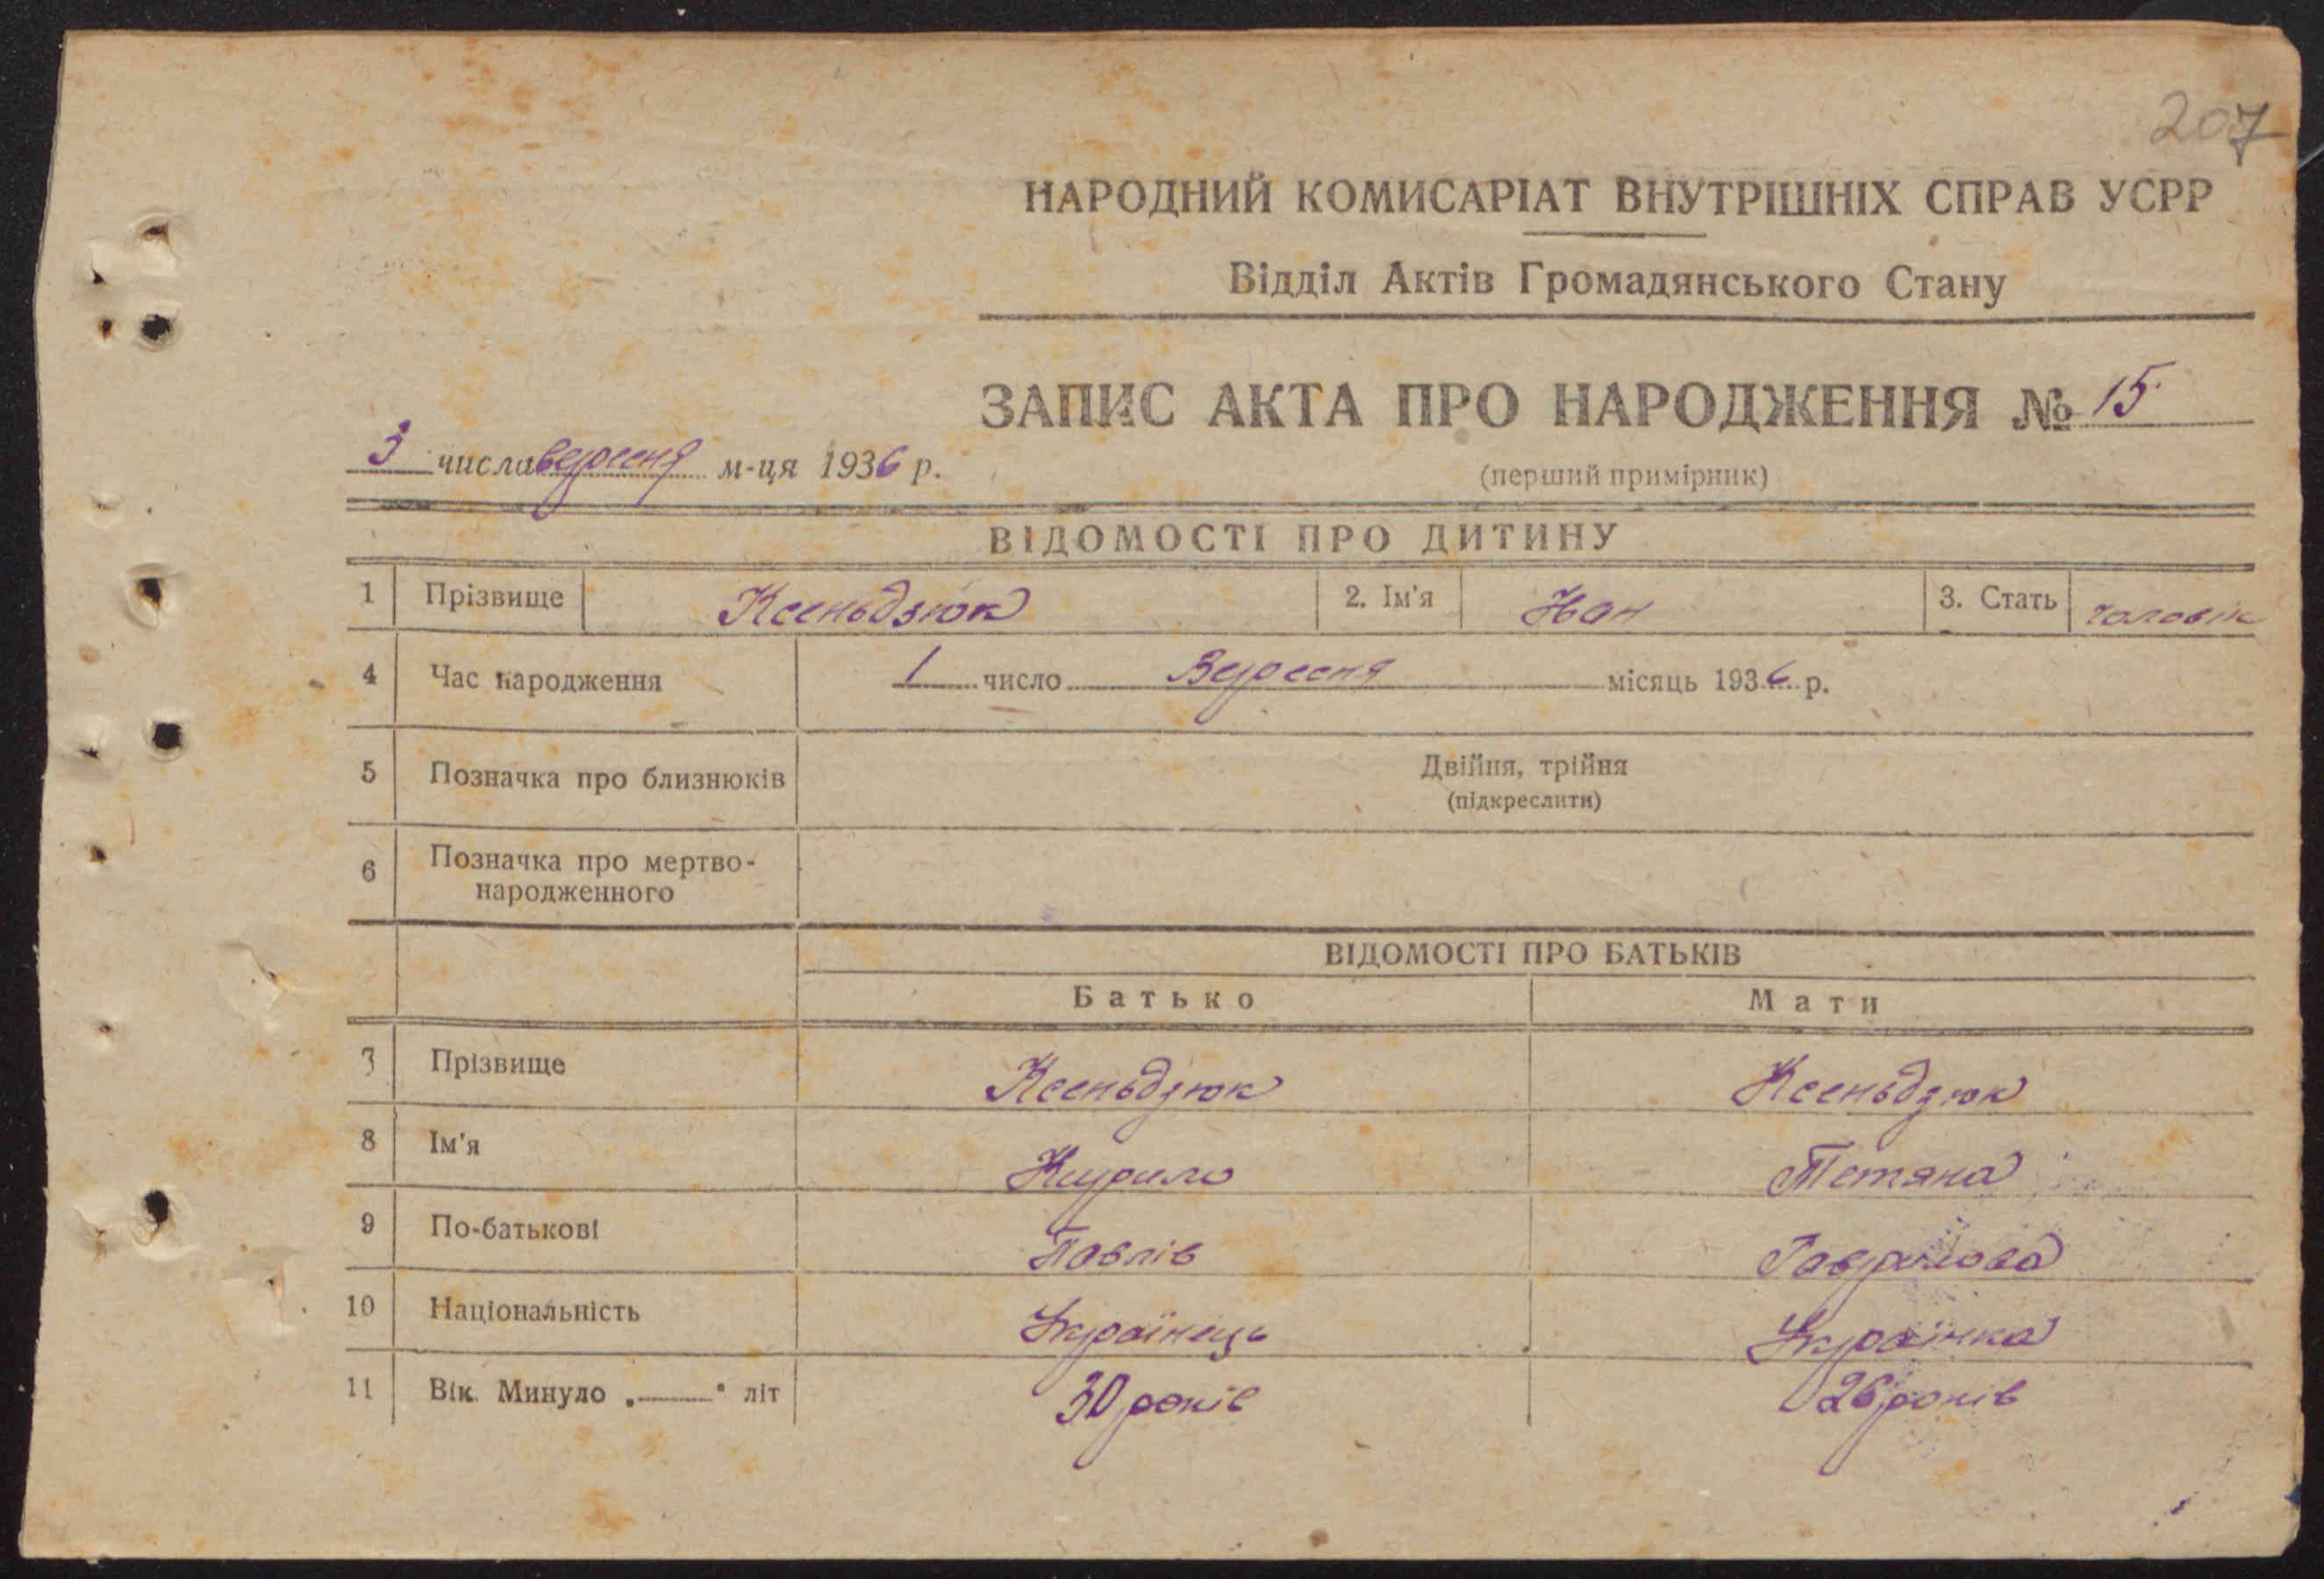 207
НАРОДНИЙ КОМИСАРІАТ ВНУТРІШНІХ СПРАВ УСРР
Відділ Актів Громадянського Стану
ЗАПИС АКТА ПРО НАРОДЖЕННЯ № 15
3 числа вересня м-ця 1936 р.
(перший примірник)
ВІДОМОСТІ ПРО ДИТИНУ
1 Прізвище Ксеньдзюк 2. Ім'я 3. Стать чоловік
4 Час народження 1 число Вересня місяць 1936 р.
5 Позначка про близнюків Двійня, трійня
(підкреслити)
6 Позначка про мертво-
народженного
ВІДОМОСТІ ПРО БАТЬКІВ
Батько Мати
7 Прізвище Ксеньдзюк Ксеньдзюк
8 Ім'я Кирило Тетяна
9 По-батькові Павлів Гаврилова
10 Національність Українець Українка
11 Вік. Минуло „ " літ 30 років 26 років